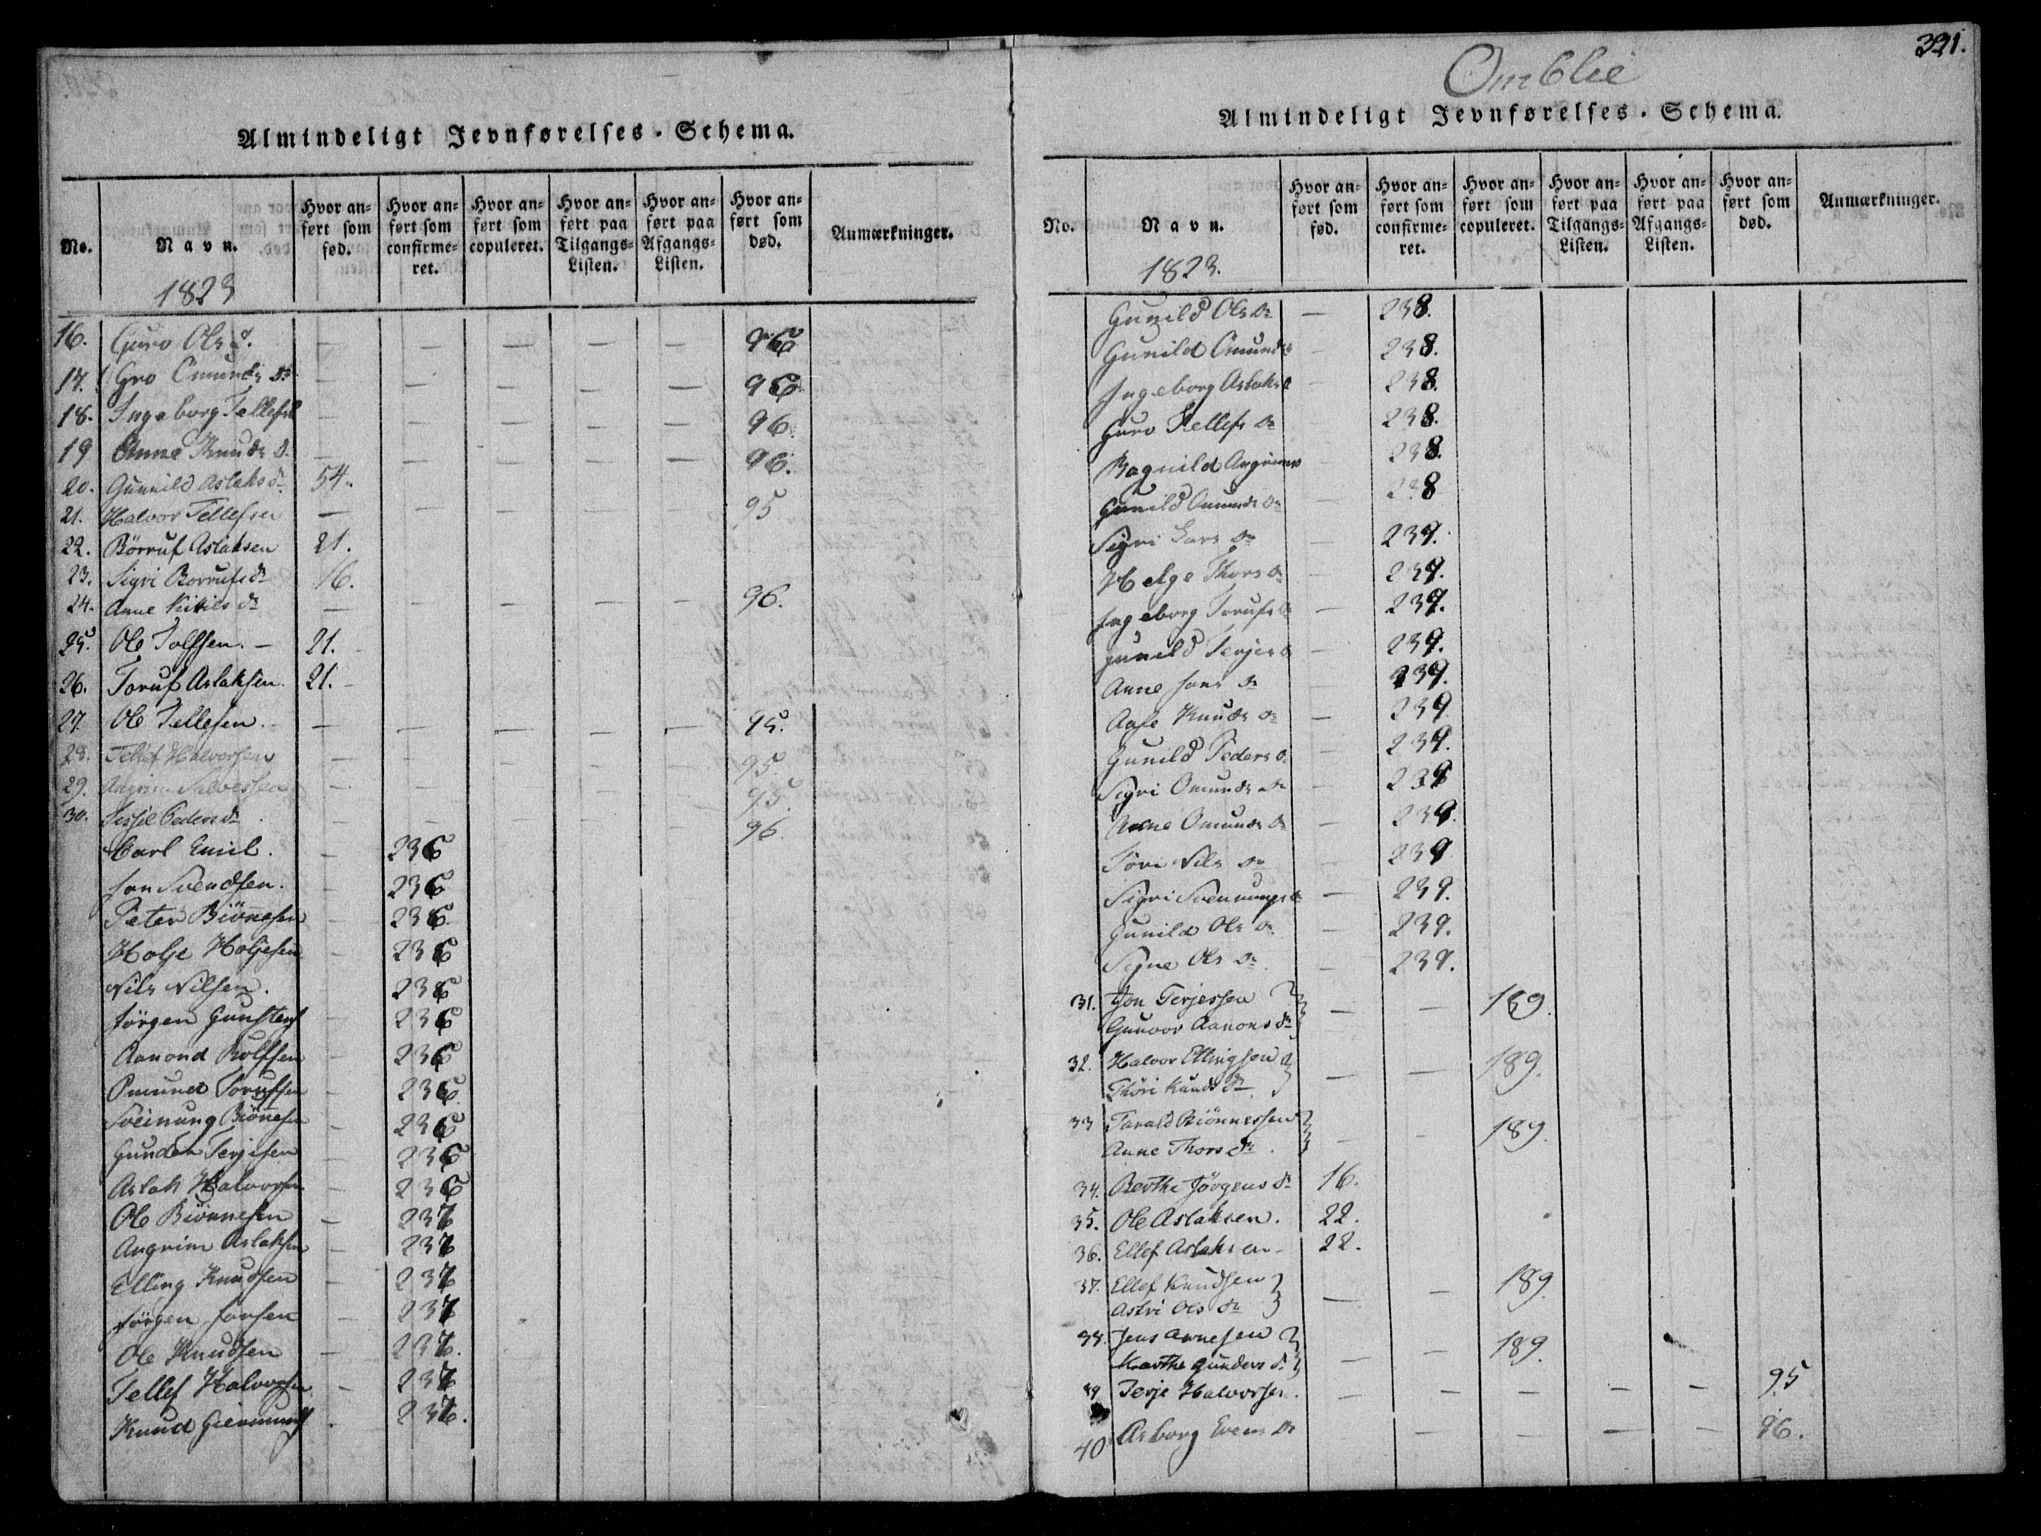 Almindeligt Jevnførelses-Schema.
No. Navn. Hvor anført som fød. Hvor anført som confirmeret. Hvor anført som copuleret. Hvor anført paa Tilgangs-Listen. Hvor anført paa Afgangs-Listen. Hvor anført som død. Anmærkninger.
1823
16. Guro Ols d. — — — — — 96
17. Gro Omunds Dr — — — — — 96
18. Ingeborg Tellefs d — — — — — 96.
19 Anne Knuds D. — — — — — 96.
20. Gunnild Aslaks dr 54.
21. Halvor Tellefsen — — — — — 95
22. Börruf Aslaksen 21.
23. Sigri Borrufs dr 16.
24. Anne Kitils dr — — — — — 96.
25. Ole Tolfsen. — 21.
26. Toruf Aslaksen. 21. -
27. Ole Tellefsen. — — — — — 95.
28. Tellef Halvorsen — — — — — 95.
29. Angrim Salvessen — — — — — 95.
30. Sissel Peders dr — — — — — 96.
Carl Emil. — 236
Jon Svendsen. — 236
Peter Biönnesen — 236
Holje Holjesen — 236
Nils Nilsen. — 236
Jörgen Gunstens — 236
Aanond Rolfsen — 236
Omund Torufsen — 236
Sveinung Biönnesen — 236
Gunder Terjesen — 236
Aslak Halvorsen — 236
Ole Biönnesen — 237
Angrim Aslaksen — 237
Elling Knudsen — 237
Jörgen Jonsen — 237
Ole Knudsen — 237.
Tellef Halvorsen — 237
Knud Giermunds . 237.
Omblie
321.
Almindeligt Jevnførelses-Schema.
No. Navn. Hvor anført som fød. Hvor anført som confirmeret. Hvor anført som copuleret. Hvor anført paa Tilgangs-Listen. Hvor anført paa Afgangs-Listen. Hvor anført som død. Anmærkninger.
1823.
Gunild Ols Dr — 238.
Gunild Omunds — 238.
Ingeborg Aslaks d — 238.
Guro Tellefs Dr 238.
Ragnild Angrims — 238.
Gunild Omunds Dr — 238
Sigri Lars Dr — 239.
Helge Thors Dr — 239.
Ingeborg Torufs D — 239.
Gunild Terjes D — 239.
Anne Jons Dr — 239.
Aase Knuds Dr — 239
Gunild Peders D. — 239.
Sigri Omunds Dr — 239
Anne Omunds Dr — 239.
Töri Nils Dr — 239
Sigri Sveinungs D — 239.
Gunild Ols Dr — 239.
Signe Ols Dr — 239.
31. Jon Terjessen
Gunvor Aanons dr — — 189.
32. Halvor Ellingsen
Thöri Knuds Dr — — 189.
33 Tarald Biönnessen
Anne Thors dr. — — 189.
34. Berthe Jörgens dr 16.
35. Ole Aslaksen. 22.
36. Ellef Aslaksen 22.
37. Ellef Knudsen
Astri Ols dr — — 189.
38. Jens Arnesen
Karthe Gunders dr — — 189.
39 Terje Halvorsen. — — — — — 95
40 Asborg Evens Dr — — — — — 96.